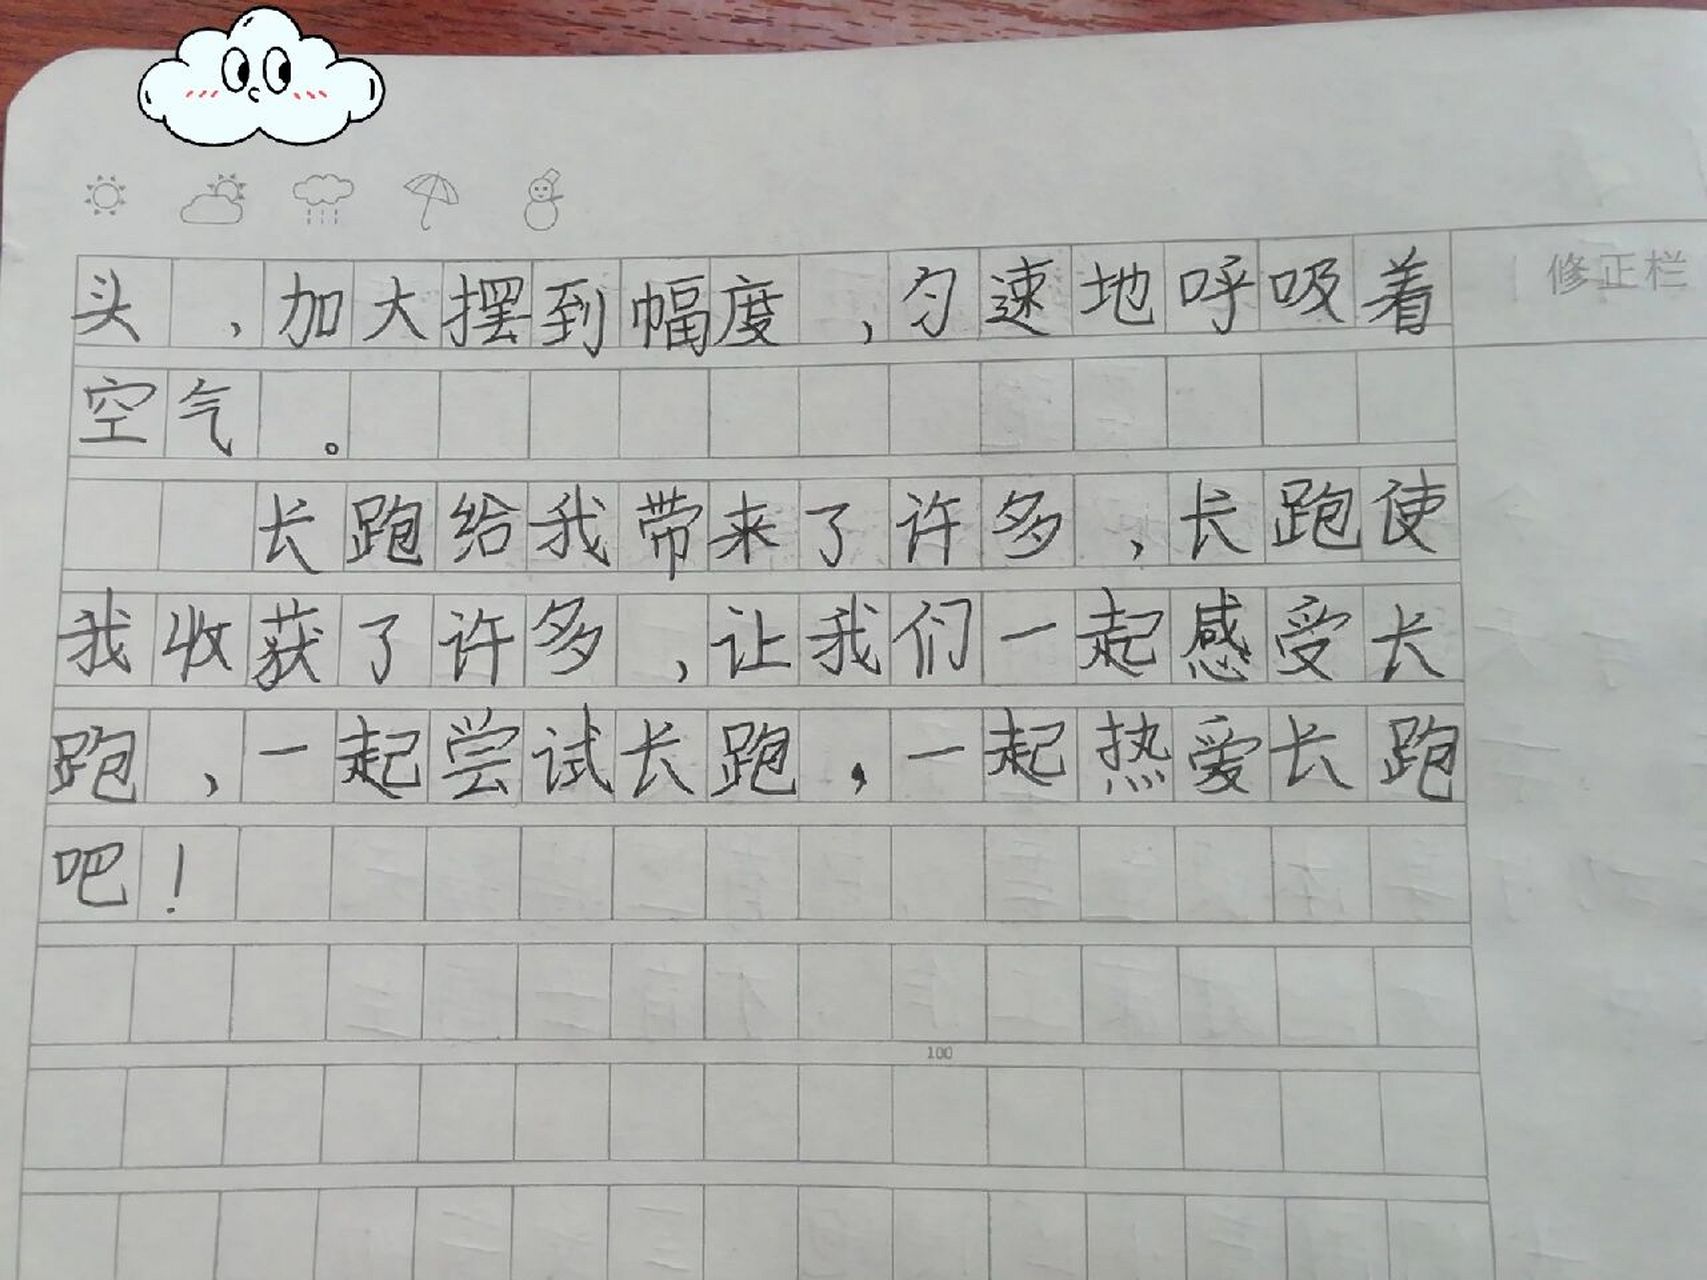 修正栏
头，加大摆到幅度，匀速地呼吸着
空气。
长跑给我带来了许多，长跑使
我收获了许多，让我们一起感受长
跑，一起尝试长跑，一起热爱长跑
吧！
100